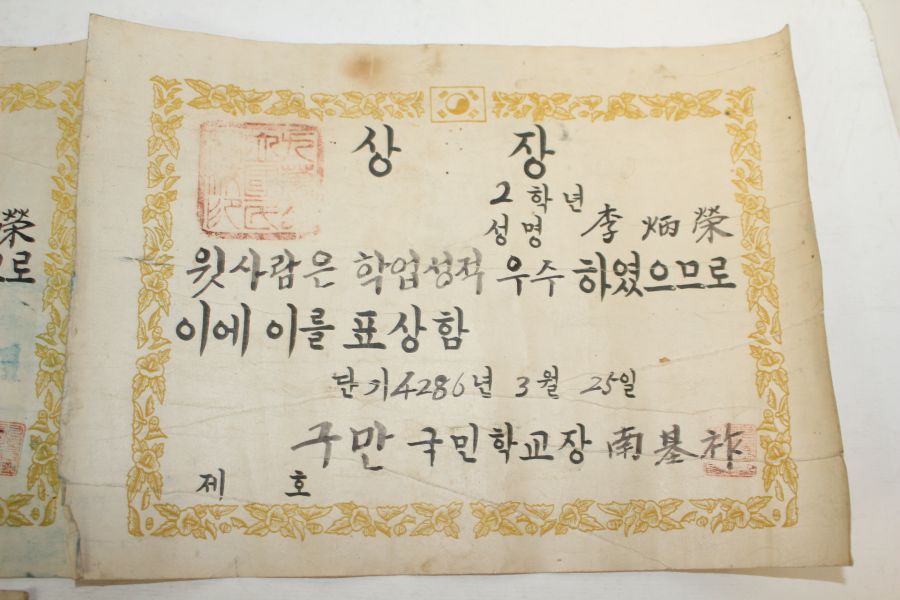 상 장
2 학년
성명 李 炳 榮
윗사람은 학업성적 우수 하였으므로
이에 이를 표상함
단기 4286년 3월 25일
구만 국민학교장 南 基 祚
제 호
榮
로